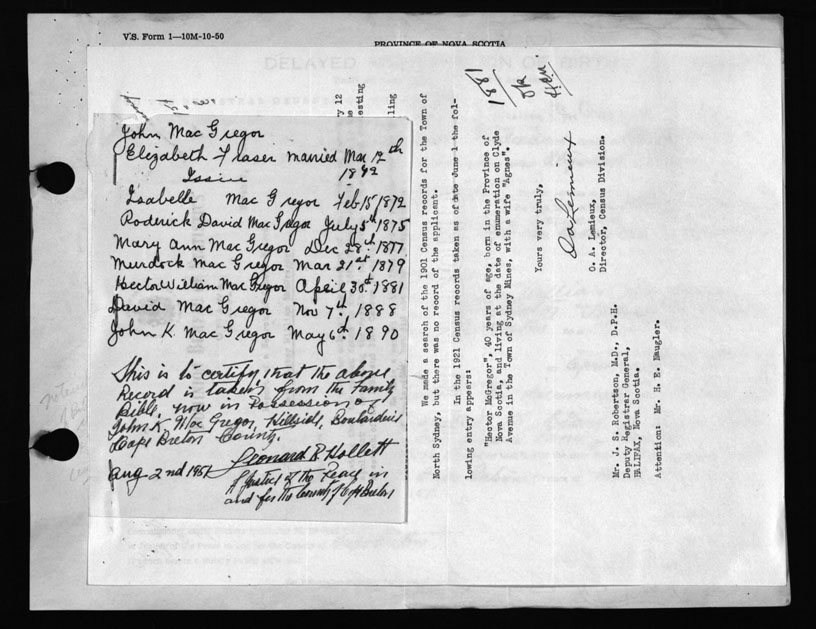 V.S. Form 1—10M-10-50
PROVINCE OF NOVA SCOTIA
John Mac Gregor
Elizabeth Fraser married Mar 12th
1872
Issue
Isabelle Mac Gregor Feb 15 1872
Roderick David Mac Gregor July 5th 1875
Mary Ann Mac Gregor Dec 28th 1877
Murdock Mac Gregor Mar 21st 1879
Hector William Mac Gregor April 30th 1881
David Mac Gregor Nov 7th, 1888
John K. Mac Gregor May 6th 1890
This is to certify that the above
Record is taken from the Family
Bible, now in Possession of
John K. Mac Gregor, Hillside, Boularderie
Cape Breton County.
Leonard R Hollett
Aug 2nd 1951
Justice of the Peace in
and for the County of C. Breton
ry 12
esting
ling
We made a search of the 1901 Census records for the Town of
North Sydney, but there was no record of the applicant.
In the 1921 Census records taken as of date June 1 the fol-
lowing entry appears:
"Hector McGregor", 40 years of age, born in the Province of
Nova Scotia, and living at the date of enumeration on Clyde
Avenue in the Town of Sydney Mines, with a wife "Agnes".
1881
OK
HEN.
Yours very truly,
O A Lemieux
O. A. Lemieux,
Director, Census Division.
Mr. J. S. Robertson, M.D., D.P.H.
Deputy Registrar General,
HALIFAX, Nova Scotia.
Attention: Mr. H. E. Naugler.